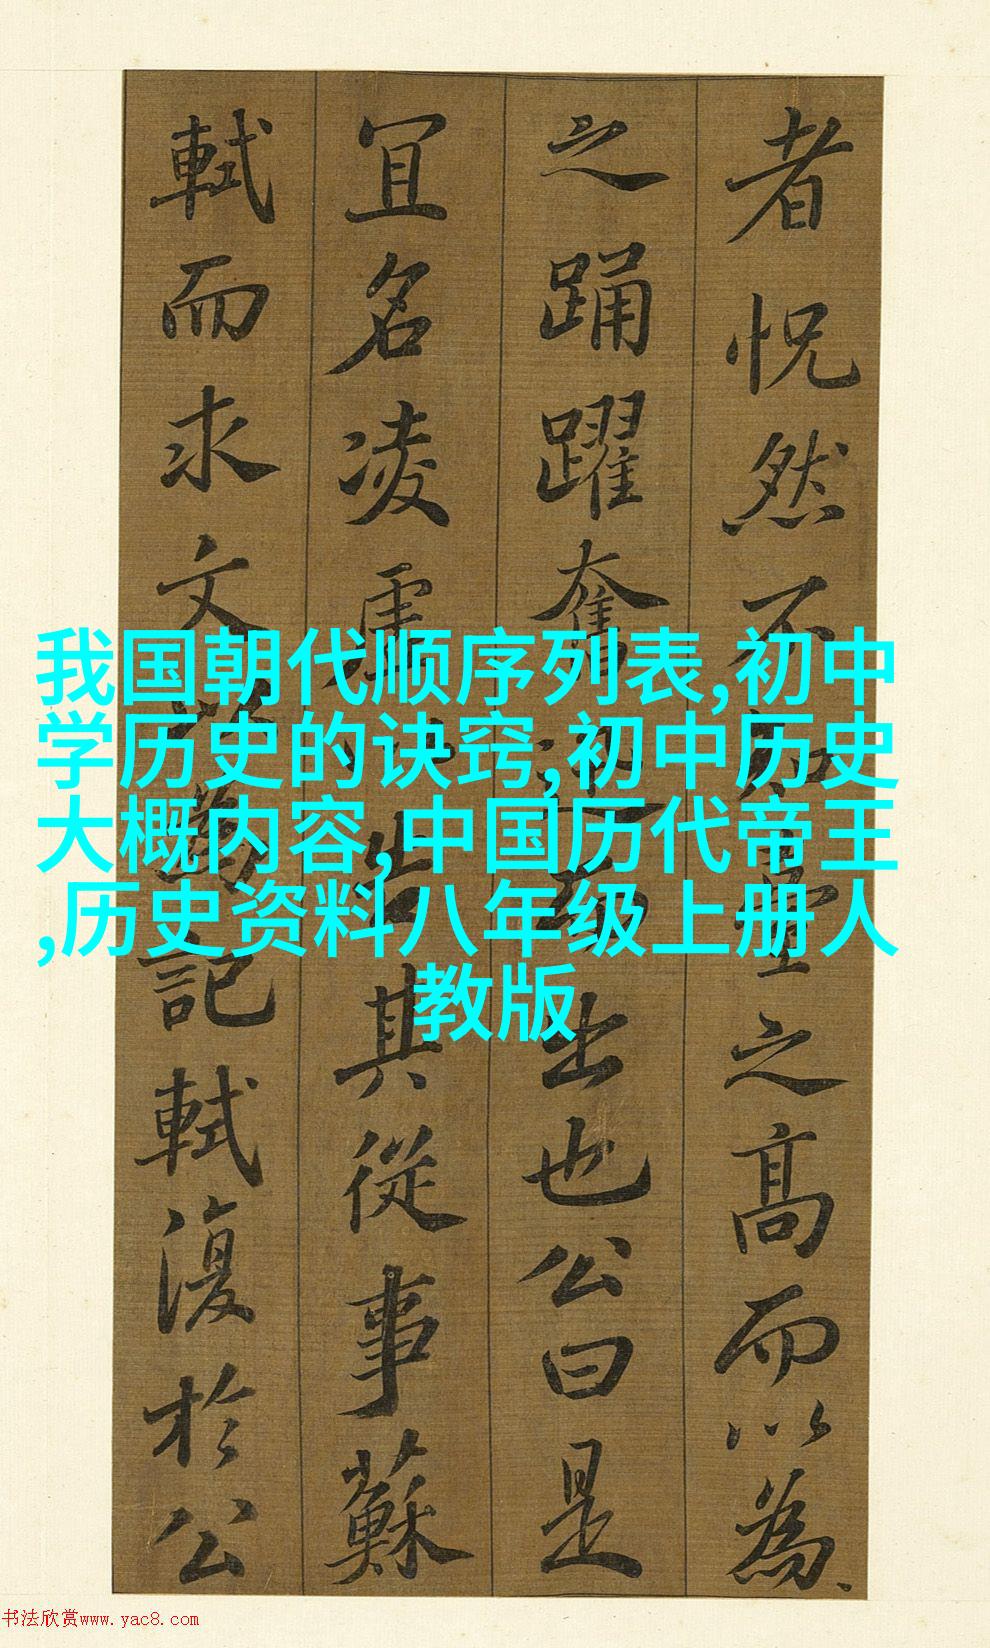 者怳然不知臺之髙而以為
之踊躍奮迅而出也公曰是
冝名凌虛以告其從事蘇
軾而求文以為記軾復於公
我国朝代顺序列表,初中
学历史的诀窍,初中历史
大概内容,中国历代帝王
,历史资料八年级上册人
教版
书法欣赏www.yac8.com